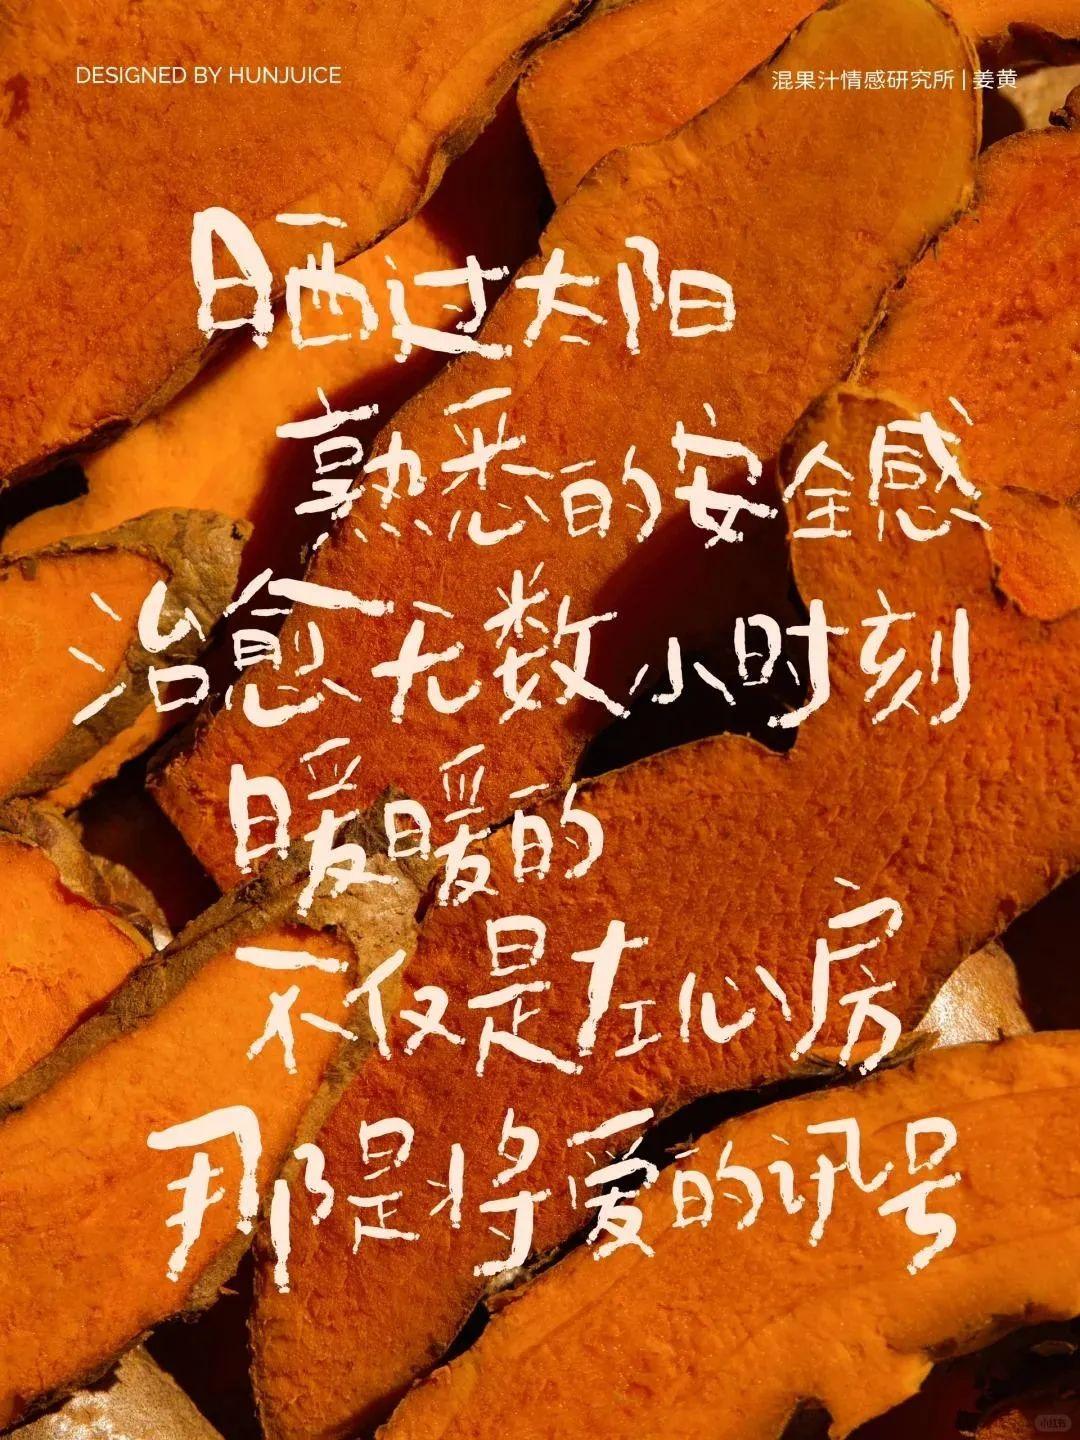 DESIGNED BY HUNJUICE
混果汁情感研究所 | 姜黄
晒过太阳
熟悉的安全感
治愈无数小时刻
暖暖的
不仅是左心房
那是将爱的讯号
小红书